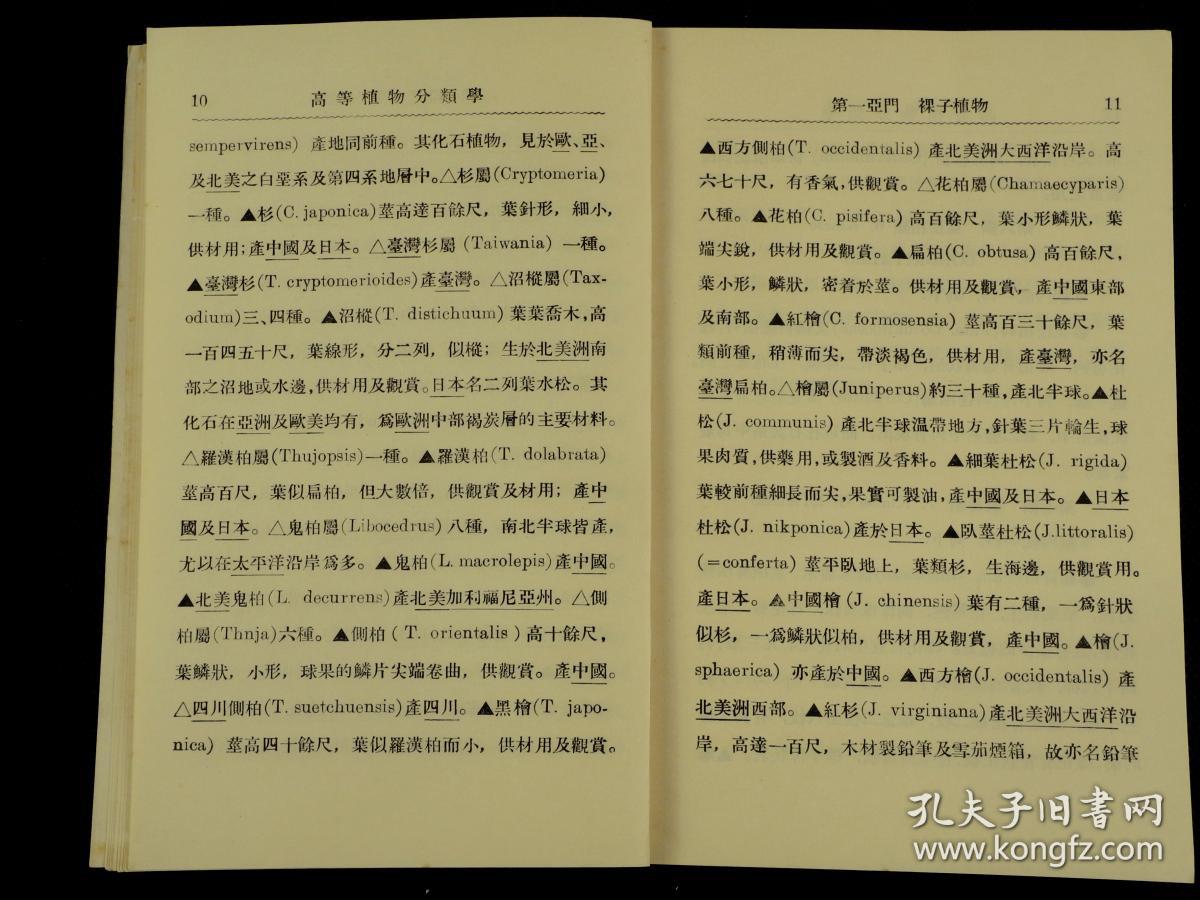 10 高等植物分類學
sempervirens) 產地同前種。其化石植物，見於歐、亞、
及北美之白堊系及第四系地層中。△杉屬(Cryptomeria)
一種。▲杉(C. japonica)莖高達百餘尺，葉針形，細小，
供材用；產中國及日本。△臺灣杉屬 (Taiwania) 一種。
▲臺灣杉(T. cryptomerioides)產臺灣。△沼樅屬(Tax-
odium)三、四種。▲沼樅(T. distichuum) 葉葉喬木，高
一百四五十尺，葉線形，分二列，似樅；生於北美洲南
部之沼地或水邊，供材用及觀賞。日本名二列葉水松。其
化石在亞洲及歐美均有，爲歐洲中部褐炭層的主要材料。
△羅漢柏屬(Thujopsis)一種。▲羅漢柏(T. dolabrata)
莖高百尺，葉似扁柏，但大數倍，供觀賞及材用；產中
國及日本。△鬼柏屬(Libocedrus) 八種，南北半球皆產，
尤以在太平洋沿岸爲多。▲鬼柏(L. macrolepis)產中國。
▲北美鬼柏(L. decurrens)產北美加利福尼亞州。△側
柏屬(Thnja)六種。▲側柏 (T. orientalis) 高十餘尺，
葉鱗狀，小形，球果的鱗片尖端卷曲，供觀賞。產中國。
△四川側柏(T. suetchuensis)產四川。▲黑檜(T. japo-
nica) 莖高四十餘尺，葉似羅漢柏而小，供材用及觀賞。
第一亞門 裸子植物 11
▲西方側柏(T. occidentalis) 產北美洲大西洋沿岸。高
六七十尺，有香氣，供觀賞。△花柏屬(Chamaecyparis)
八種。▲花柏(C. pisifera) 高百餘尺，葉小形鱗狀，葉
端尖銳，供材用及觀賞。▲扁柏(C. obtusa) 高百餘尺，
葉小形，鱗狀，密着於莖。供材用及觀賞，產中國東部
及南部。▲紅檜(C. formosensia) 莖高百三十餘尺，葉
類前種，稍薄而尖，帶淡褐色，供材用，產臺灣，亦名
臺灣扁柏。△檜屬(Juniperus)約三十種，產北半球。▲杜
松(J. communis) 產北半球温帶地方，針葉三片輪生，球
果肉質，供藥用，或製酒及香料。▲細葉杜松(J. rigida)
葉較前種細長而尖，果實可製油，產中國及日本。▲日本
杜松(J. nikponica)產於日本。▲臥莖杜松(J.littoralis)
(=conferta) 莖平臥地上，葉類杉，生海邊，供觀賞用。
產日本。▲中國檜 (J. chinensis) 葉有二種，一爲針狀
似杉，一爲鱗狀似柏，供材用及觀賞，產中國。▲檜(J.
sphaerica) 亦產於中國。▲西方檜(J. occidentalis) 產
北美洲西部。▲紅杉(J. virginiana)產北美洲大西洋沿
岸，高達一百尺，木材製鉛筆及雪茄煙箱，故亦名鉛筆
孔夫子旧书网
www.kongfz.com